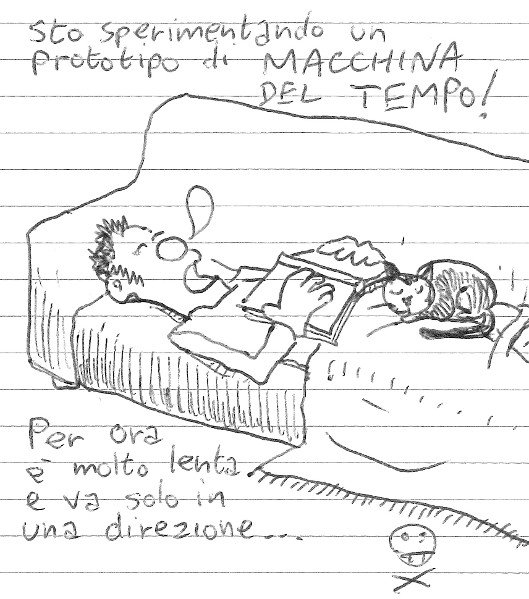 Sto sperimentando un
prototipo di MACCHINA
DEL TEMPO!
Per ora
è molto lenta
e va solo in
una direzione...